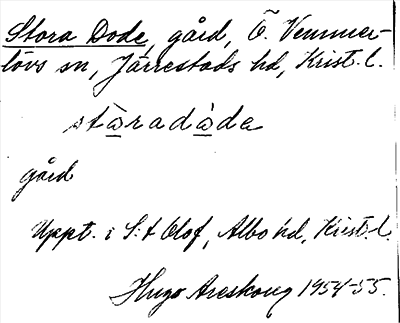 Stora Dode, gård, Ö. Vemmer-
lövs sn, Järrestads hd, Krist. l.
stàradàda
gård
Uppt. i S:t Olof, Albo hd, Krist. l.
Hugo Areskoug 1954-55.